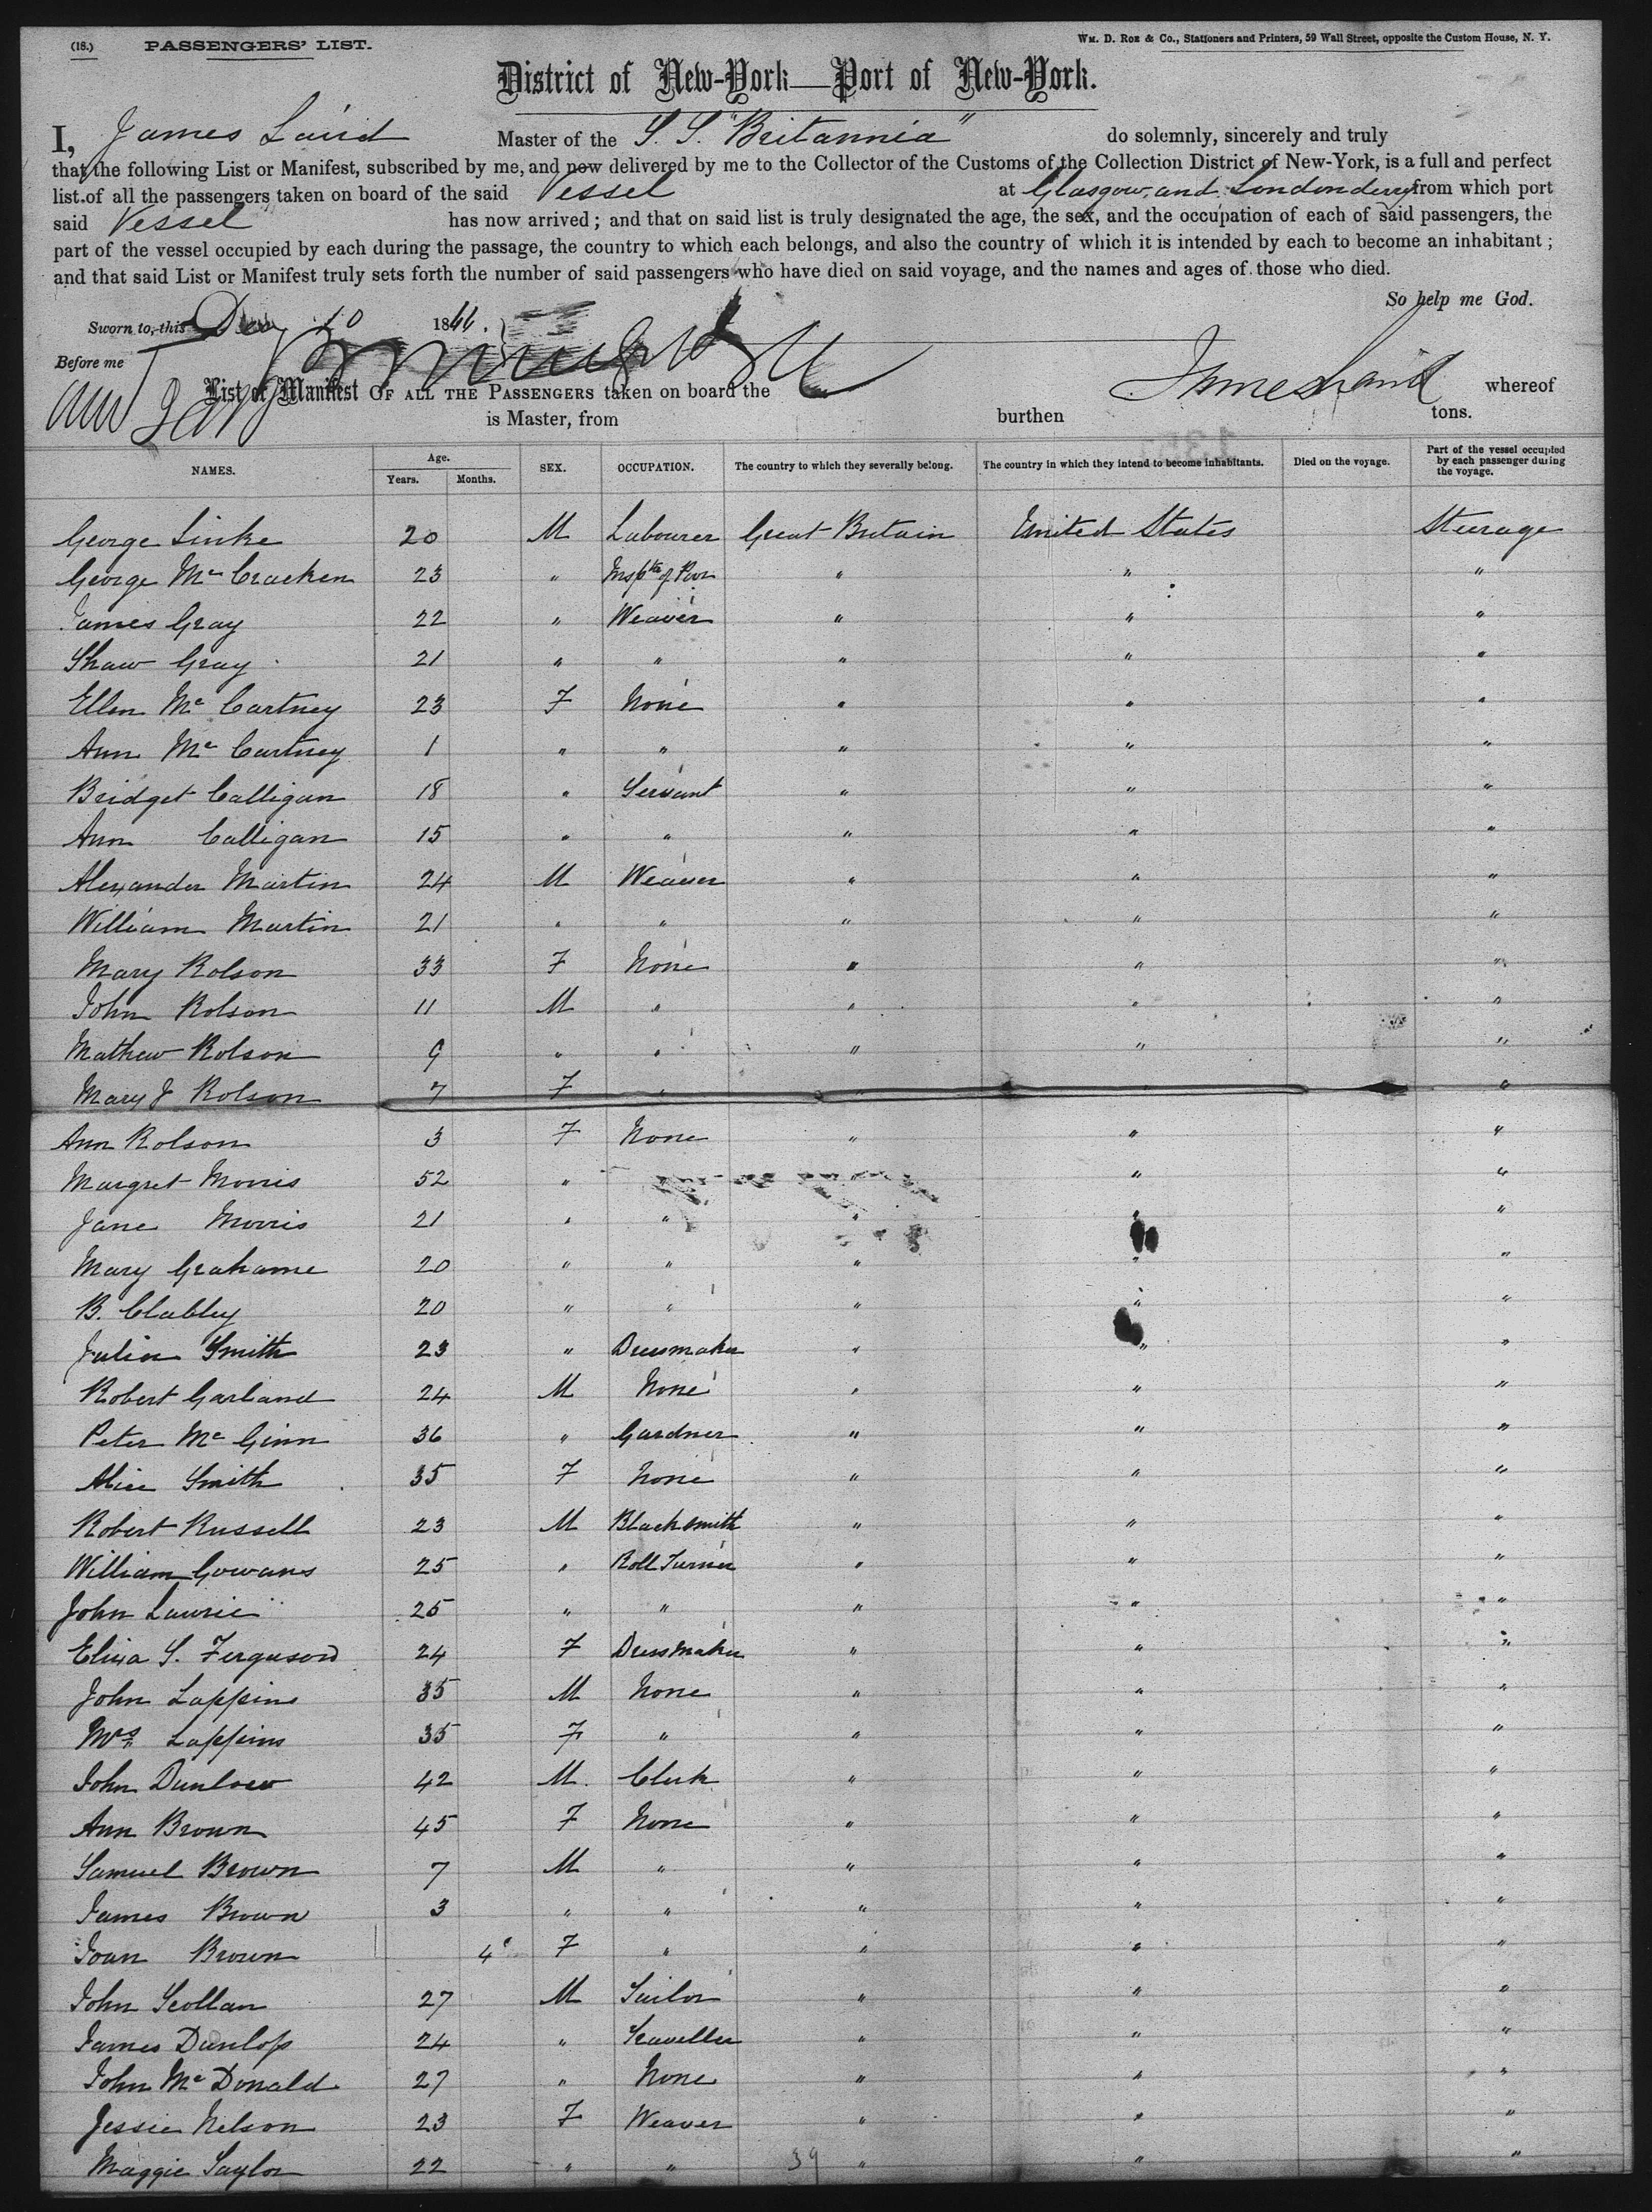 (18.) PASSENGERS' LIST. WM. D. ROE & CO., Stationers and Printers, 59 Wall Street, opposite the Custom House, N. Y.
District of New-York—Port of New-York.
I, James Laird Master of the S. S. "Britannia" do solemnly, sincerely and truly
that the following List or Manifest, subscribed by me, and now delivered by me to the Collector of the Customs of the Collection District of New-York, is a full and perfect
list of all the passengers taken on board of the said Vessel at Glasgow and Londonderry from which port
said Vessel has now arrived; and that on said list is truly designated the age, the sex, and the occupation of each of said passengers, the
part of the vessel occupied by each during the passage, the country to which each belongs, and also the country of which it is intended by each to become an inhabitant;
and that said List or Manifest truly sets forth the number of said passengers who have died on said voyage, and the names and ages of those who died.
So help me God.
Sworn to, this Dec 10 1866.
Before me
List or Manifest OF ALL THE PASSENGERS taken on board the James Laird whereof
is Master, from burthen tons.
NAMES. Age. Years. Months. SEX. OCCUPATION. The country to which they severally belong. The country in which they intend to become inhabitants. Died on the voyage. Part of the vessel occupied by each passenger during the voyage.
George Linke 20 M Labourer Great Britain United States Steerage
George McCracken 23 " Inspktr of Poor " " "
James Gray 22 " Weaver " " "
Shaw Gray 21 " " " " "
Ellen McCartney 23 F None " " "
Ann McCartney 1 " " " " "
Bridget Calligan 18 " Servant " " "
Ann Calligan 15 " " " " "
Alexander Martin 24 M Weaver " " "
William Martin 21 " " " " "
Mary Rolson 33 F None " " "
John Rolson 11 M " " " "
Mathew Rolson 9 " " " " "
Mary J Rolson 7 F " " " "
Ann Rolson 3 F None " " "
Margret Morris 52 " " " "
Jane Morris 21 " " " " "
Mary Grahame 20 " " " " "
B. Clabby 20 " " " " "
Julia Smith 23 " Dressmaker " " "
Robert Garland 24 M None " " "
Peter McGinn 36 " Gardner " " "
Alice Smith 35 F None " " "
Robert Russell 23 M Blacksmith " " "
William Gowans 25 " Roll Turner " " "
John Laurie 25 " " " " "
Eliza S. Ferguson 24 F Dressmaker " " "
John Lappins 35 M None " " "
Mrs Lappins 35 F " " " "
John Dunlow 42 M. Clerk " " "
Ann Brown 45 F None " " "
Samuel Brown 7 M " " " "
James Brown 3 " " " " "
Joan Brown 4 F " " " "
John Scollan 27 M Tailor " " "
James Dunlop 24 " Traveller " " "
John McDonald 27 " None " " "
Jessie Nelson 23 F Weaver " " "
Maggie Taylor 22 " " " " "
39